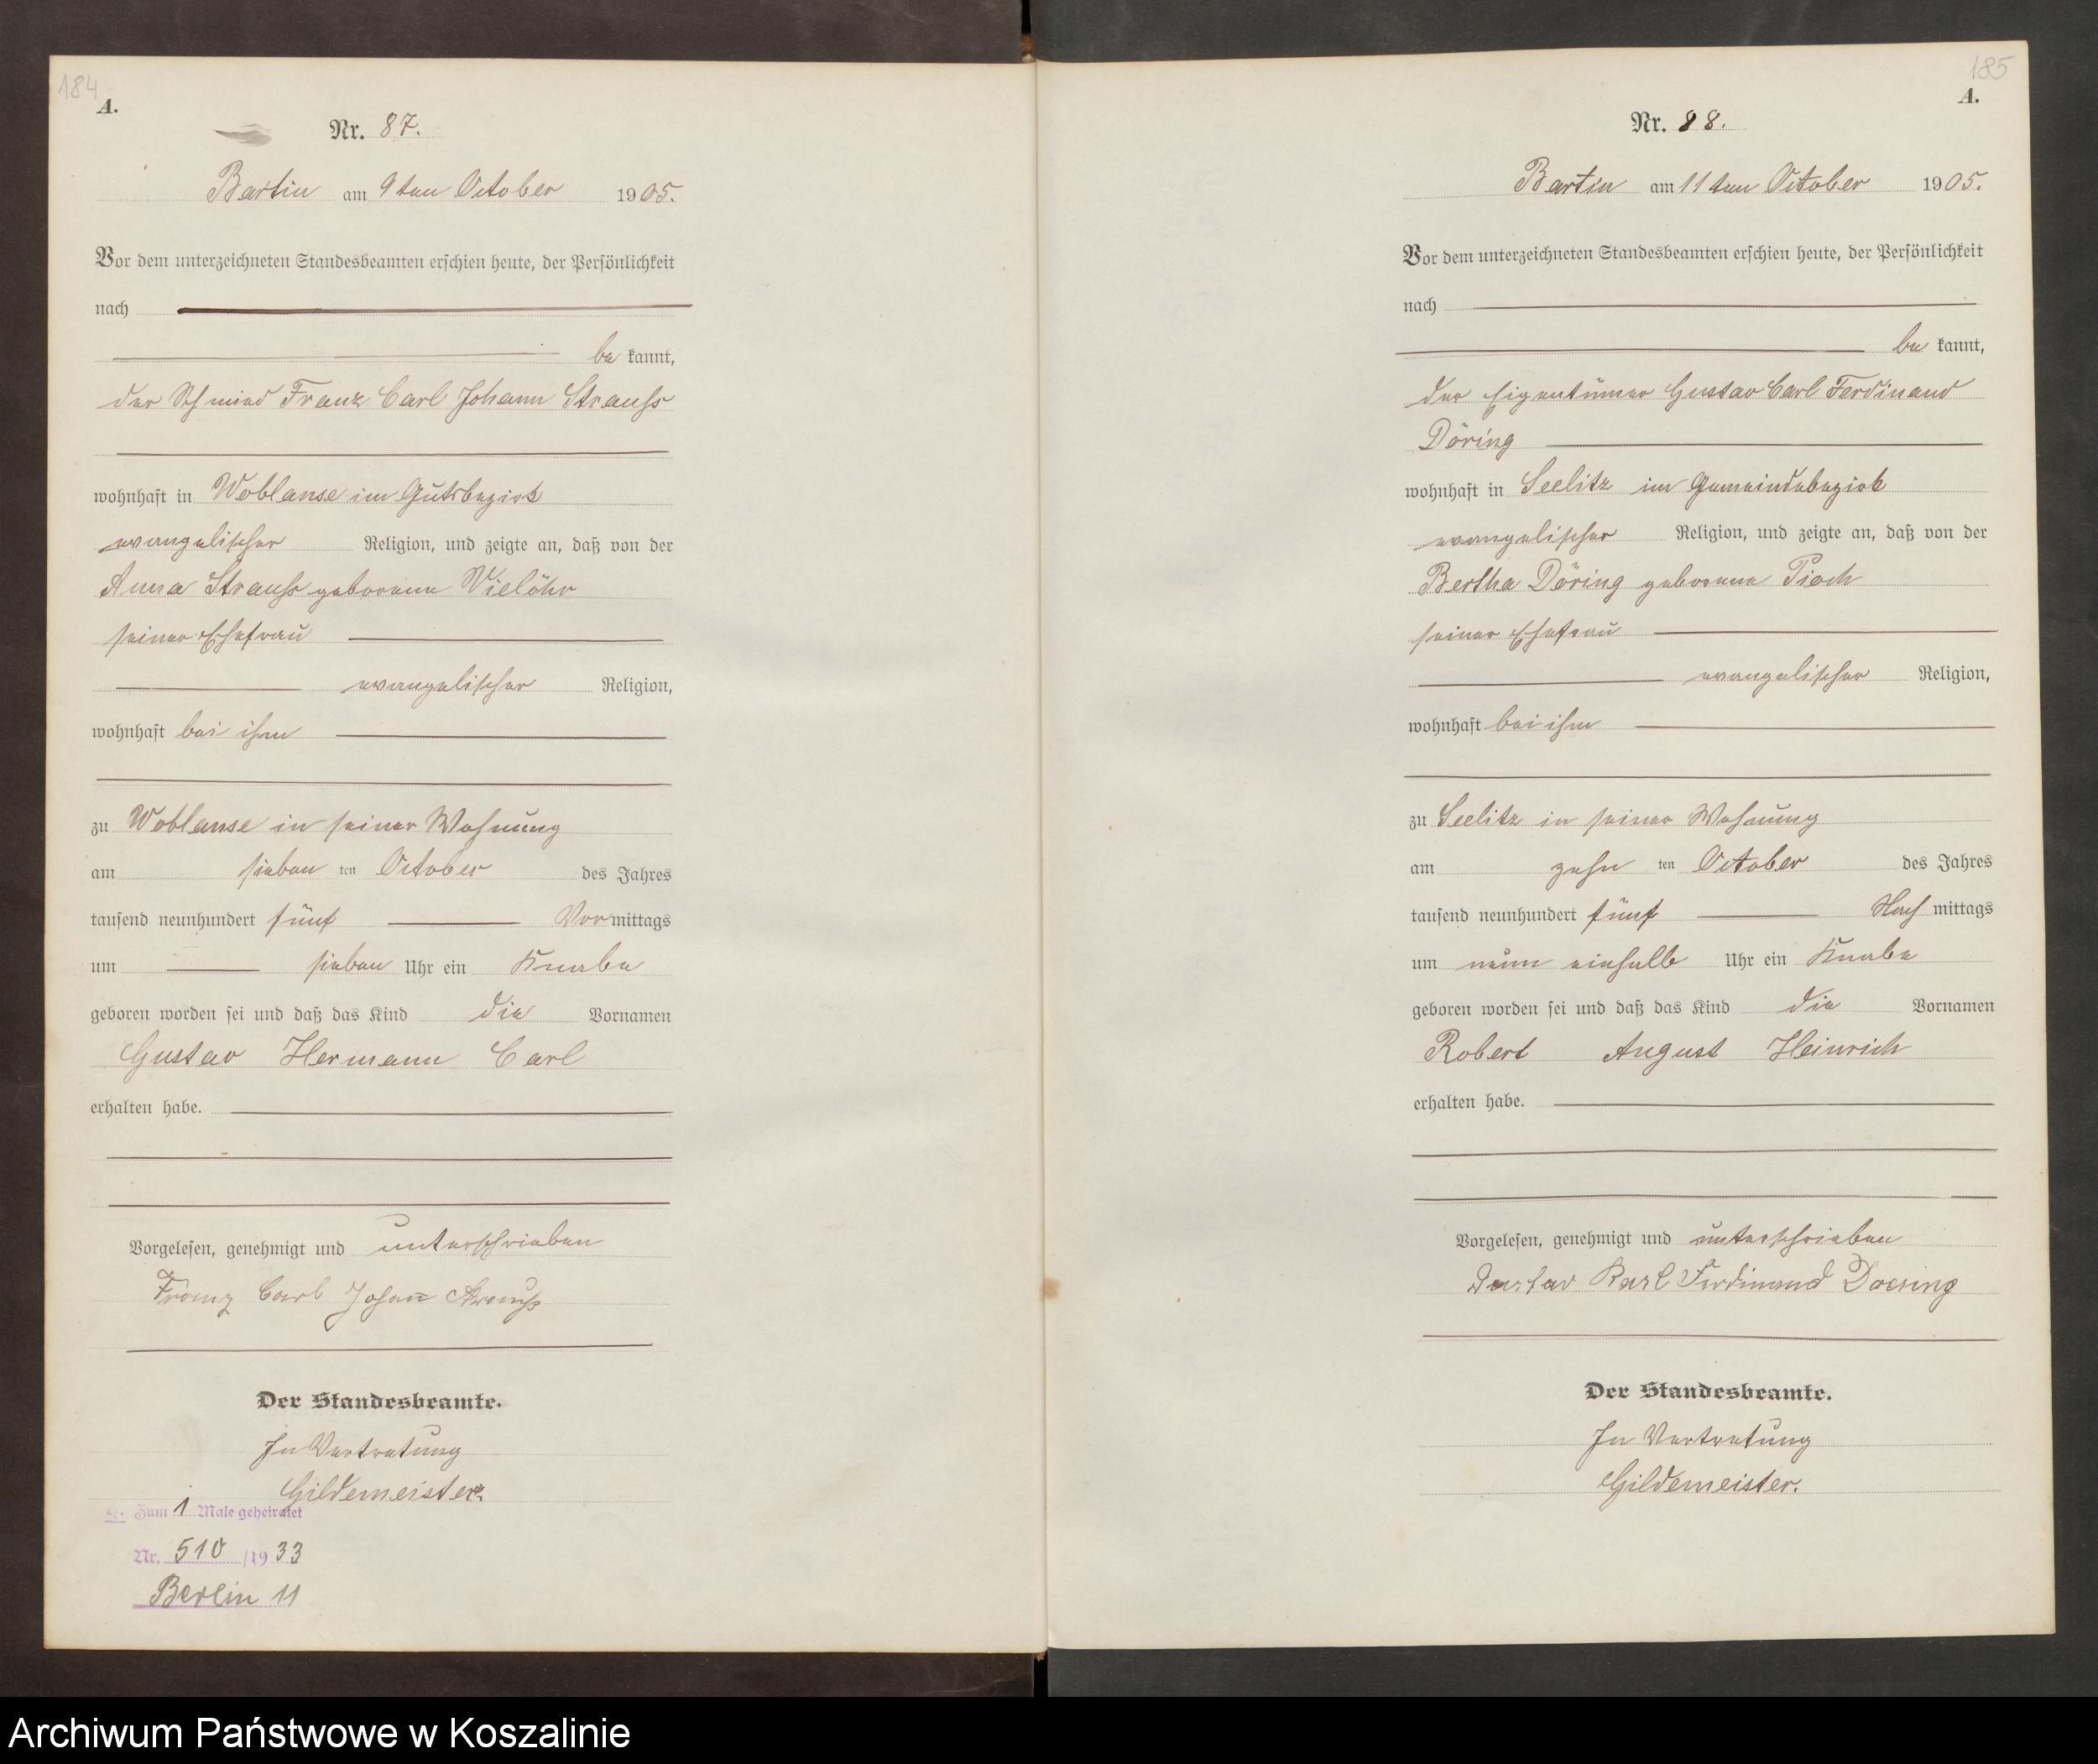 184
A.
Nr. 87.
Bartin am 9ten October 1905.
Vor dem unterzeichneten Standesbeamten erschien heute, der Persönlichkeit
nach
be kannt,
der Schmied Franz Carl Johann Strauss
wohnhaft in Woblanse im Gutsbezirk
evangelischer Religion, und zeigte an, daß von der
Anna Strauss geborene Vielöhr
seiner Ehefrau
evangelischer Religion,
wohnhaft bei ihm
zu Woblanse in seiner Wohnung
am sieben ten October des Jahres
tausend neunhundert fünf Vormittags
um sieben Uhr ein Knabe
geboren worden sei und daß das Kind die Vornamen
Gustav Hermann Carl
erhalten habe.
Vorgelesen, genehmigt und unterschrieben
Franz Carl Johan Strauss
Der Standesbeamte.
In Vertretung
Gildemeister.
Zum 1 Male geheiratet
Nr. 510 /1933
Berlin 11
185
A.
Nr. 88.
Bartin am 11ten October 1905.
Vor dem unterzeichneten Standesbeamten erschien heute, der Persönlichkeit
nach
be kannt,
der Eigentümer Gustav Carl Ferdinand
Döring
wohnhaft in Seelitz im Gemeindebezirk
evangelischer Religion, und zeigte an, daß von der
Bertha Döring geborene Pioch
seiner Ehefrau
evangelischer Religion,
wohnhaft bei ihm
zu Seelitz in seiner Wohnung
am zehn ten October des Jahres
tausend neunhundert fünf Nach mittags
um neun einhalb Uhr ein Knabe
geboren worden sei und daß das Kind die Vornamen
Robert August Heinrich
erhalten habe.
Vorgelesen, genehmigt und unterschrieben
Gustav Karl Ferdinand Doering
Der Standesbeamte.
In Vertretung
Gildemeister.
Archiwum Państwowe w Koszalinie